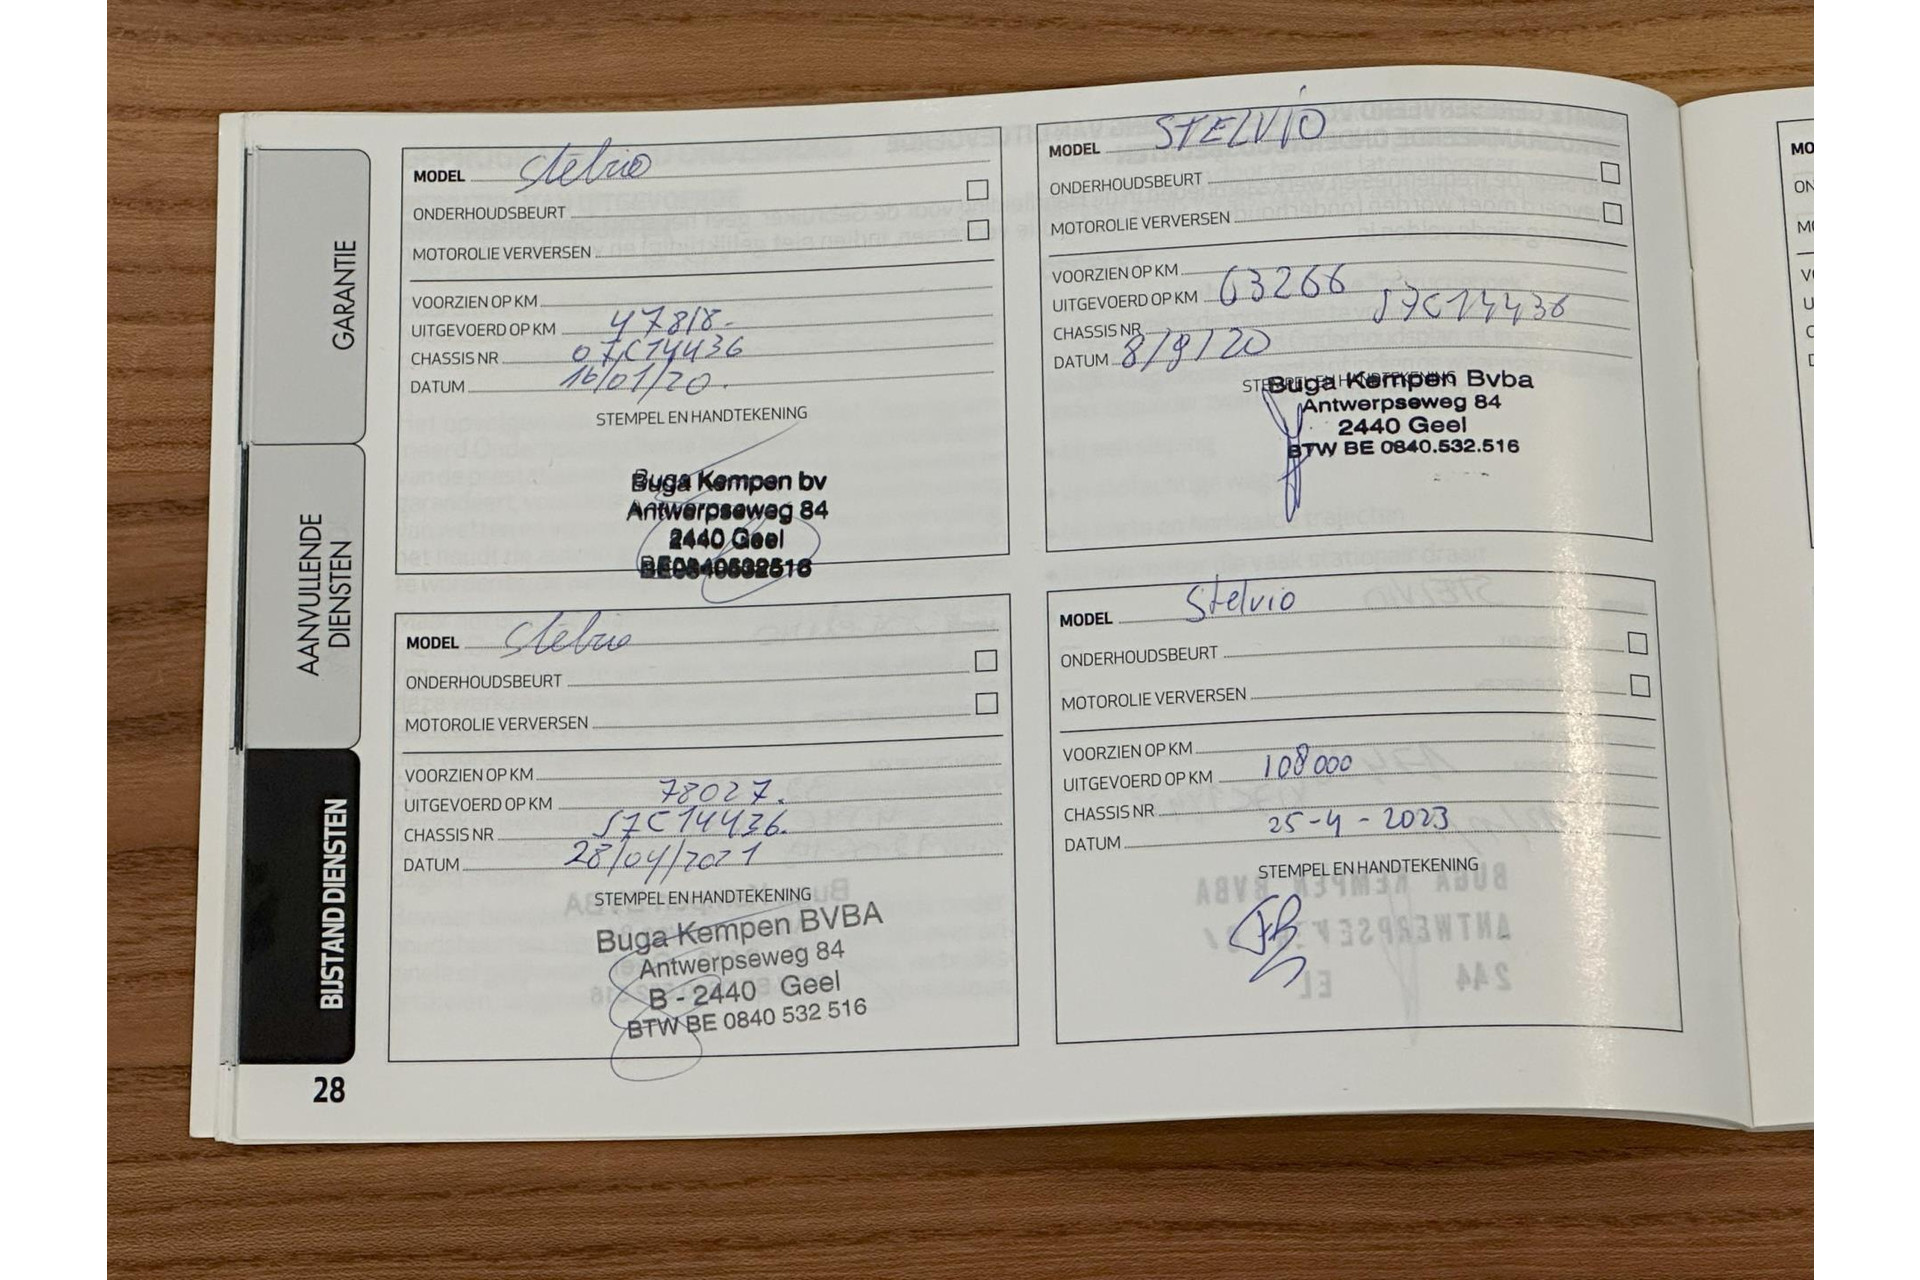 GARANTIE
AANVULLENDE
DIENSTEN
BIJSTAND DIENSTEN
28
MODEL Stelvio
ONDERHOUDSBEURT
MOTOROLIE VERVERSEN
VOORZIEN OP KM
UITGEVOERD OP KM 47818-
CHASSIS NR 07C14436
DATUM 16/01/20.
STEMPEL EN HANDTEKENING
Buga Kempen bv
Antwerpseweg 84
2440 Geel
BE0840532516
MODEL STELVIO
ONDERHOUDSBEURT
MOTOROLIE VERVERSEN
VOORZIEN OP KM
UITGEVOERD OP KM 63266
CHASSIS NR J7C14436
DATUM 8/9/20
STEMPEL EN HANDTEKENING
Buga Kempen Bvba
Antwerpseweg 84
2440 Geel
BTW BE 0840.532.516
MODEL Stelvio
ONDERHOUDSBEURT
MOTOROLIE VERVERSEN
VOORZIEN OP KM
UITGEVOERD OP KM 78027.
CHASSIS NR J7C14436.
DATUM 28/04/2021
STEMPEL EN HANDTEKENING
Buga Kempen BVBA
Antwerpseweg 84
B - 2440 Geel
BTW BE 0840 532 516
MODEL Stelvio
ONDERHOUDSBEURT
MOTOROLIE VERVERSEN
VOORZIEN OP KM
UITGEVOERD OP KM 108000
CHASSIS NR
DATUM 25-4-2023
STEMPEL EN HANDTEKENING
MO